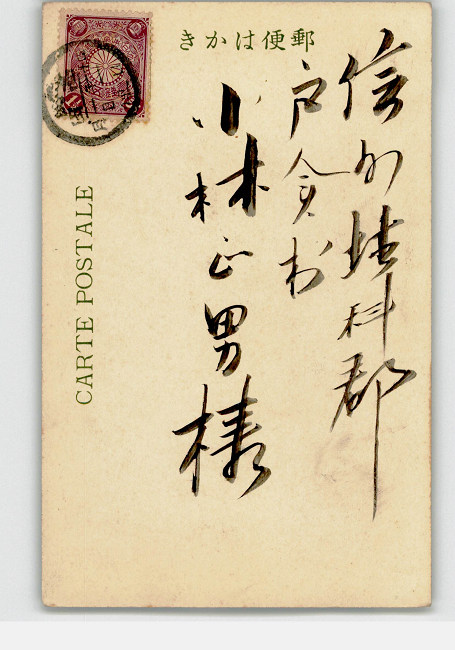 きかは便郵
信州埴科郡
戸倉村
小林正男様
CARTE POSTALE